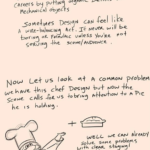 careers by putting organic
Mechanical objects
Sometimes Design can feel like
a inter-balancing Act. It never will be
boring or repetitive unless you're not
serving the scene/Audience.
Now Let us look at a common problem
we have this chef Design but now the
scene calls for us to bring Attention to a Pie
he is holding.
WELL WE CAN ALREADY
solve some problems
with clear staging!